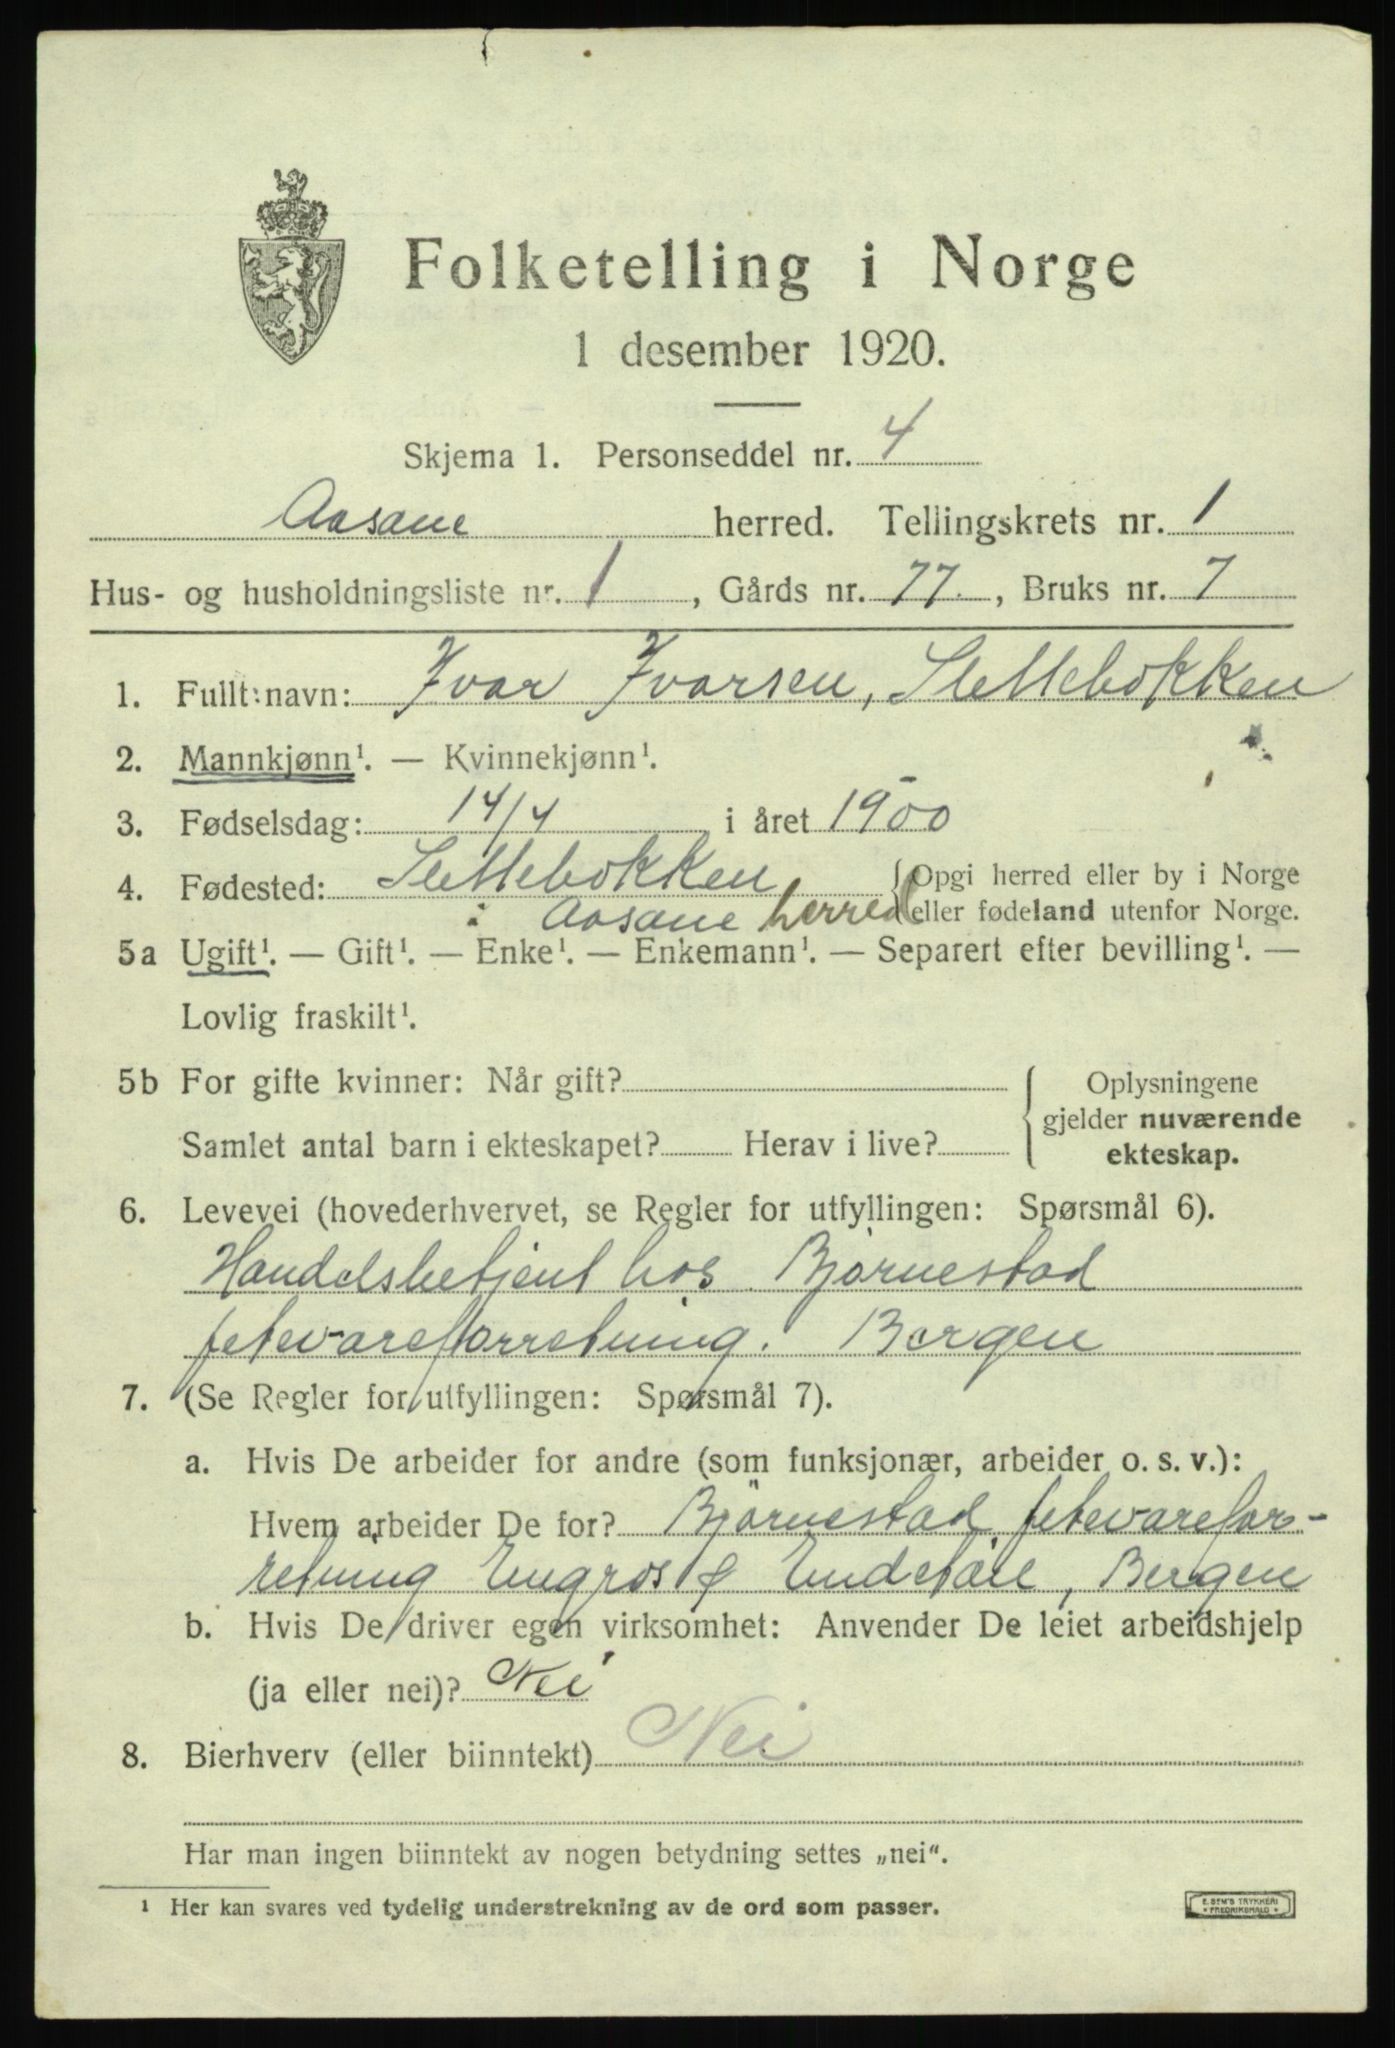 Folketelling i Norge
1 desember 1920.
Skjema 1. Personseddel nr. 4
Aasane herred. Tellingskrets nr. 1
Hus- og husholdningsliste nr. 1, Gårds nr. 77., Bruks nr. 7
1. Fullt navn: Ivar Ivarsen, Slettebakken
2. Mannkjønn¹. — Kvinnekjønn¹.
3. Fødselsdag: 14/4 i året 1900
4. Fødested: Slettebakken {Opgi herred eller by i Norge
i Aasane herred eller fødeland utenfor Norge.
5a Ugift¹. — Gift¹. — Enke¹. — Enkemann¹. — Separert efter bevilling¹. —
Lovlig fraskilt¹.
5b For gifte kvinner: Når gift? Oplysningene
gjelder nuværende
Samlet antal barn i ekteskapet? Herav i live? ekteskap.
6. Levevei (hovederhvervet, se Regler for utfyllingen: Spørsmål 6).
Handelsbetjent hos Bjørnestad
fetevareforretning. Bergen
7. (Se Regler for utfyllingen: Spørsmål 7).
a. Hvis De arbeider for andre (som funksjonær, arbeider o. s. v.):
Hvem arbeider De for? Bjørnestad fetevarefor-
retning Engros & Endetail, Bergen
b. Hvis De driver egen virksomhet: Anvender De leiet arbeidshjelp
(ja eller nei)? Nei
8. Bierhverv (eller biinntekt) Nei
Har man ingen biinntekt av nogen betydning settes „nei“.
¹ Her kan svares ved tydelig understrekning av de ord som passer.
E. SEM'S TRYKKERI
* FREDRIKSHALD *